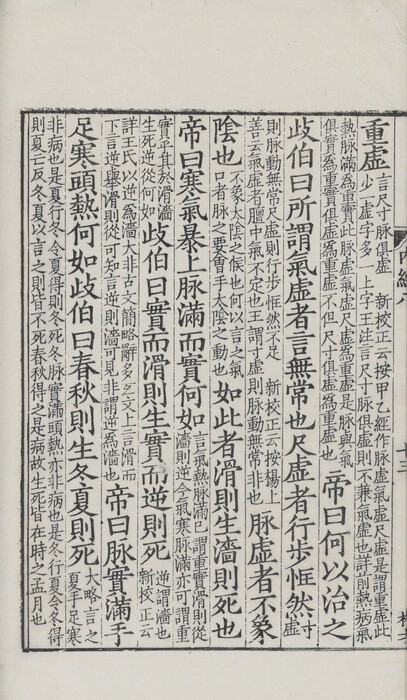 重虛言尺寸脉俱虛 新校正云按甲乙經作脉虛氣虛尺虛是謂重虛此
少一虛字多一上字王注言尺寸脉俱虛則不兼氣虛也詳前熱病氣
熱脉滿為重實此脉虛氣虛尺虛為重虛是脉與氣
俱實為重實俱虛為重虛不但尺寸俱虛為重虛也
帝曰何以治之
歧伯曰所謂氣虛者言無常也尺虛者行步恇然寸虛
則脉動無常尺虛則行步恇然不足 新校正云按楊上
善云氣虛者膻中氣不定也王謂寸虛則脉動無常非也
脉虛者不象
陰也不象太陰之候也何以言之氣
口者脉之要會手太陰之動也
如此者滑則生濇則死也
帝曰寒氣暴上脉滿而實何如言氣熱脉滿已謂重實滑則從
濇則逆今氣寒脉滿亦可謂重
實乎其於滑濇
生死逆從何如
歧伯曰實而滑則生實而逆則死逆謂濇也
新校正云
詳王氏以逆為濇大非古文簡略辭多互文上言滑而
下言逆舉滑則從可知言逆則濇可見非謂逆為濇也
帝曰脉實滿手
足寒頭熱何如歧伯曰春秋則生冬夏則死大略言之
夏手足寒
非病也是夏行冬令夏得則冬死冬脉實滿頭熱亦非病也是冬行夏令冬得
則夏亡反冬夏以言之則皆不死春秋得之是病故生死皆在時之孟月也
内經八
十三